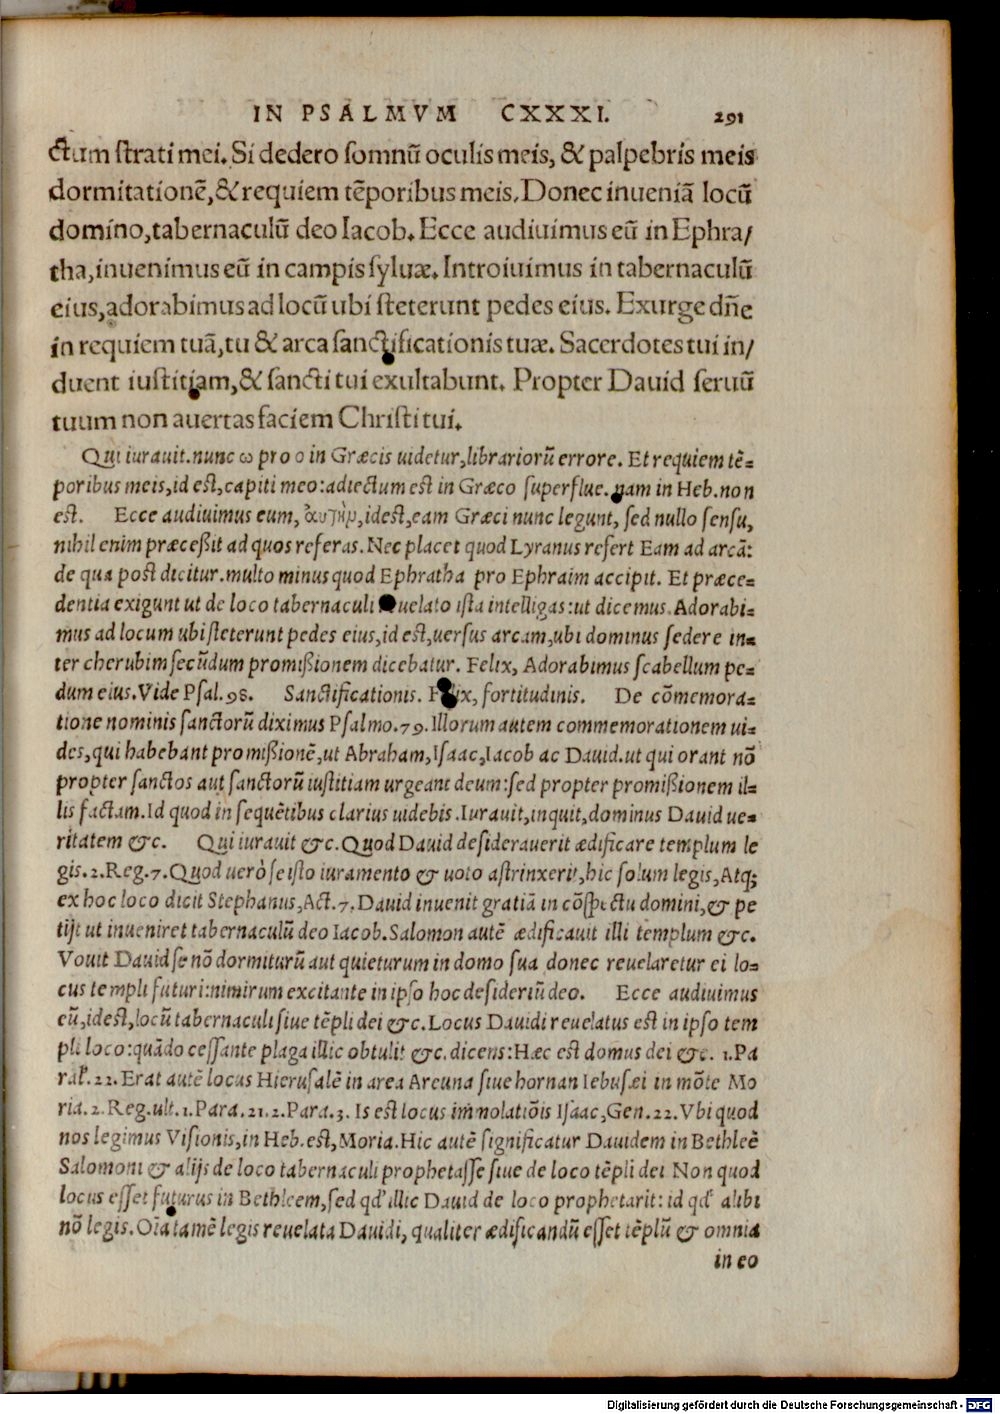 IN PSALMVM CXXXI. 291
ctum strati mei. Si dedero somnū oculis meis, & palpebris meis
dormitationē, & requiem tēporibus meis. Donec inueniā locū
domino, tabernaculū deo Iacob. Ecce audiuimus eū in Ephra/
tha, inuenimus eū in campis syluæ. Introiuimus in tabernaculū
eius, adorabimus ad locū ubi steterunt pedes eius. Exurge dn̄e
in requiem tuā, tu & arca sanctificationis tuæ. Sacerdotes tui in/
duent iustitiam, & sancti tui exultabunt. Propter Dauid seruū
tuum non auertas faciem Christi tui.
Qui iurauit. nunc ω pro o in Græcis uidetur, librariorū errore. Et requiem tē=
poribus meis, id est, capiti meo: adiectum est in Græco superflue. nam in Heb. non
est. Ecce audiuimus eum, idest, eam Græci nunc legunt, sed nullo sensu,
nihil enim præceßit ad quos referas. Nec placet quod Lyranus refert Eam ad arcā:
de qua post dicitur. multo minus quod Ephratha pro Ephraim accipit. Et præce=
dentia exigunt ut de loco tabernaculi reuelato ista intelligas: ut dicemus. Adorabi=
mus ad locum ubi steterunt pedes eius, id est, uersus arcam, ubi dominus sedere in=
ter cherubim secūdum promißionem dicebatur. Felix, Adorabimus scabellum pe=
dum eius. Vide Psal. 98. Sanctificationis. Felix, fortitudinis. De cōmemora=
tione nominis sanctorū diximus Psalmo. 79. Illorum autem commemorationem ui=
des, qui habebant promißionē, ut Abraham, Isaac, Iacob ac Dauid. ut qui orant nō
propter sanctos aut sanctorū iustitiam urgeant deum: sed propter promißionem il=
lis factam. Id quod in sequētibus clarius uidebis. Iurauit, inquit, dominus Dauid ue=
ritatem &c. Qui iurauit &c. Quod Dauid desiderauerit ædificare templum le
gis. 2. Reg. 7. Quod uerò se isto iuramento & uoto astrinxerit, hic solum legis, Atq;
ex hoc loco dicit Stephanus, Act. 7. Dauid inuenit gratiā in cōspectu domini, & pe
tijt ut inueniret tabernaculū deo Iacob. Salomon autē ædificauit illi templum &c.
Vouit Dauid se nō dormiturū aut quieturum in domo sua donec reuelaretur ei lo=
cus templi futuri: nimirum excitante in ipso hoc desideriū deo. Ecce audiuimus
eū, idest, locū tabernaculi siue tēpli dei &c. Locus Dauidi reuelatus est in ipso tem
pli loco: quādo cessante plaga illic obtulit &c. dicens: Hæc est domus dei &c. 1. Pa
ral. 22. Erat autē locus Hierusalē in area Areuna siue hornan Iebusæi in mōte Mo
ria. 2. Reg. ult. 1. Para. 21. 2. Para. 3. Is est locus immolatiōis Isaac, Gen. 22. Vbi quod
nos legimus Visionis, in Heb. est, Moria. Hic autē significatur Dauidem in Bethleē
Salomoni & alijs de loco tabernaculi prophetasse siue de loco tēpli dei Non quod
locus esset futurus in Bethleem, sed qd' illic Dauid de loco prophetarit: id qd' alibi
nō legis. Oīa tamē legis reuelata Dauidi, qualiter ædificandū esset tēplū & omnia
in eo
Digitalisierung gefördert durch die Deutsche Forschungsgemeinschaft - DFG